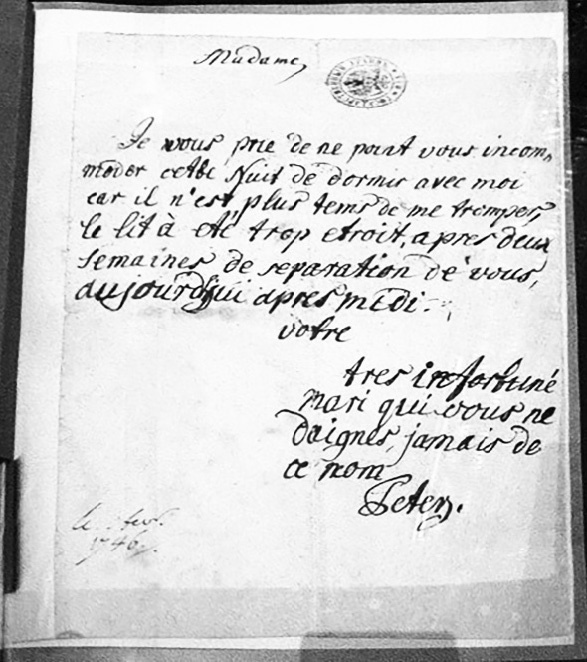 Madame,
Je vous prie de ne point vous incom,
moder cette Nuis de dormir avec moi
car il n'est plus tems de me tromper,
le lit à eté trop etroit, apres deux
semaines de separation de vous,
aujourd'hui apres midi.
votre
tres infortuné
mari qui vous ne
daignes jamais de
ce nom
Peter.
le
1746